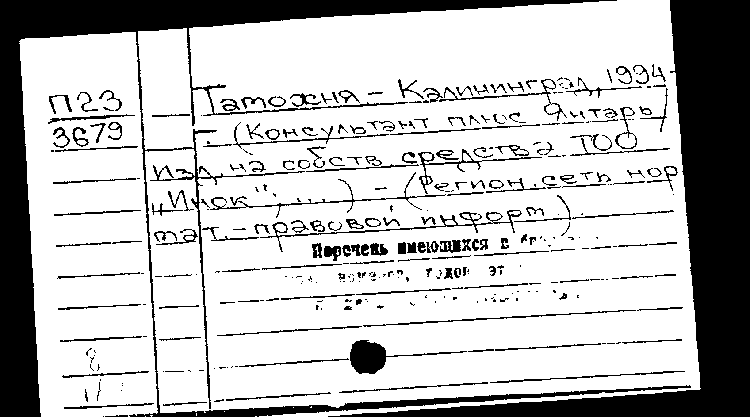 П23
3679
Таможня - Калининград, 1994-
г. (Консультант плюс Янтарь /
изд. на собств средства ТОО
„Инок", ...) - (Регион. сеть нор
мат.-правовой информ.)
Перечень имеющихся в
номеров, годов
8